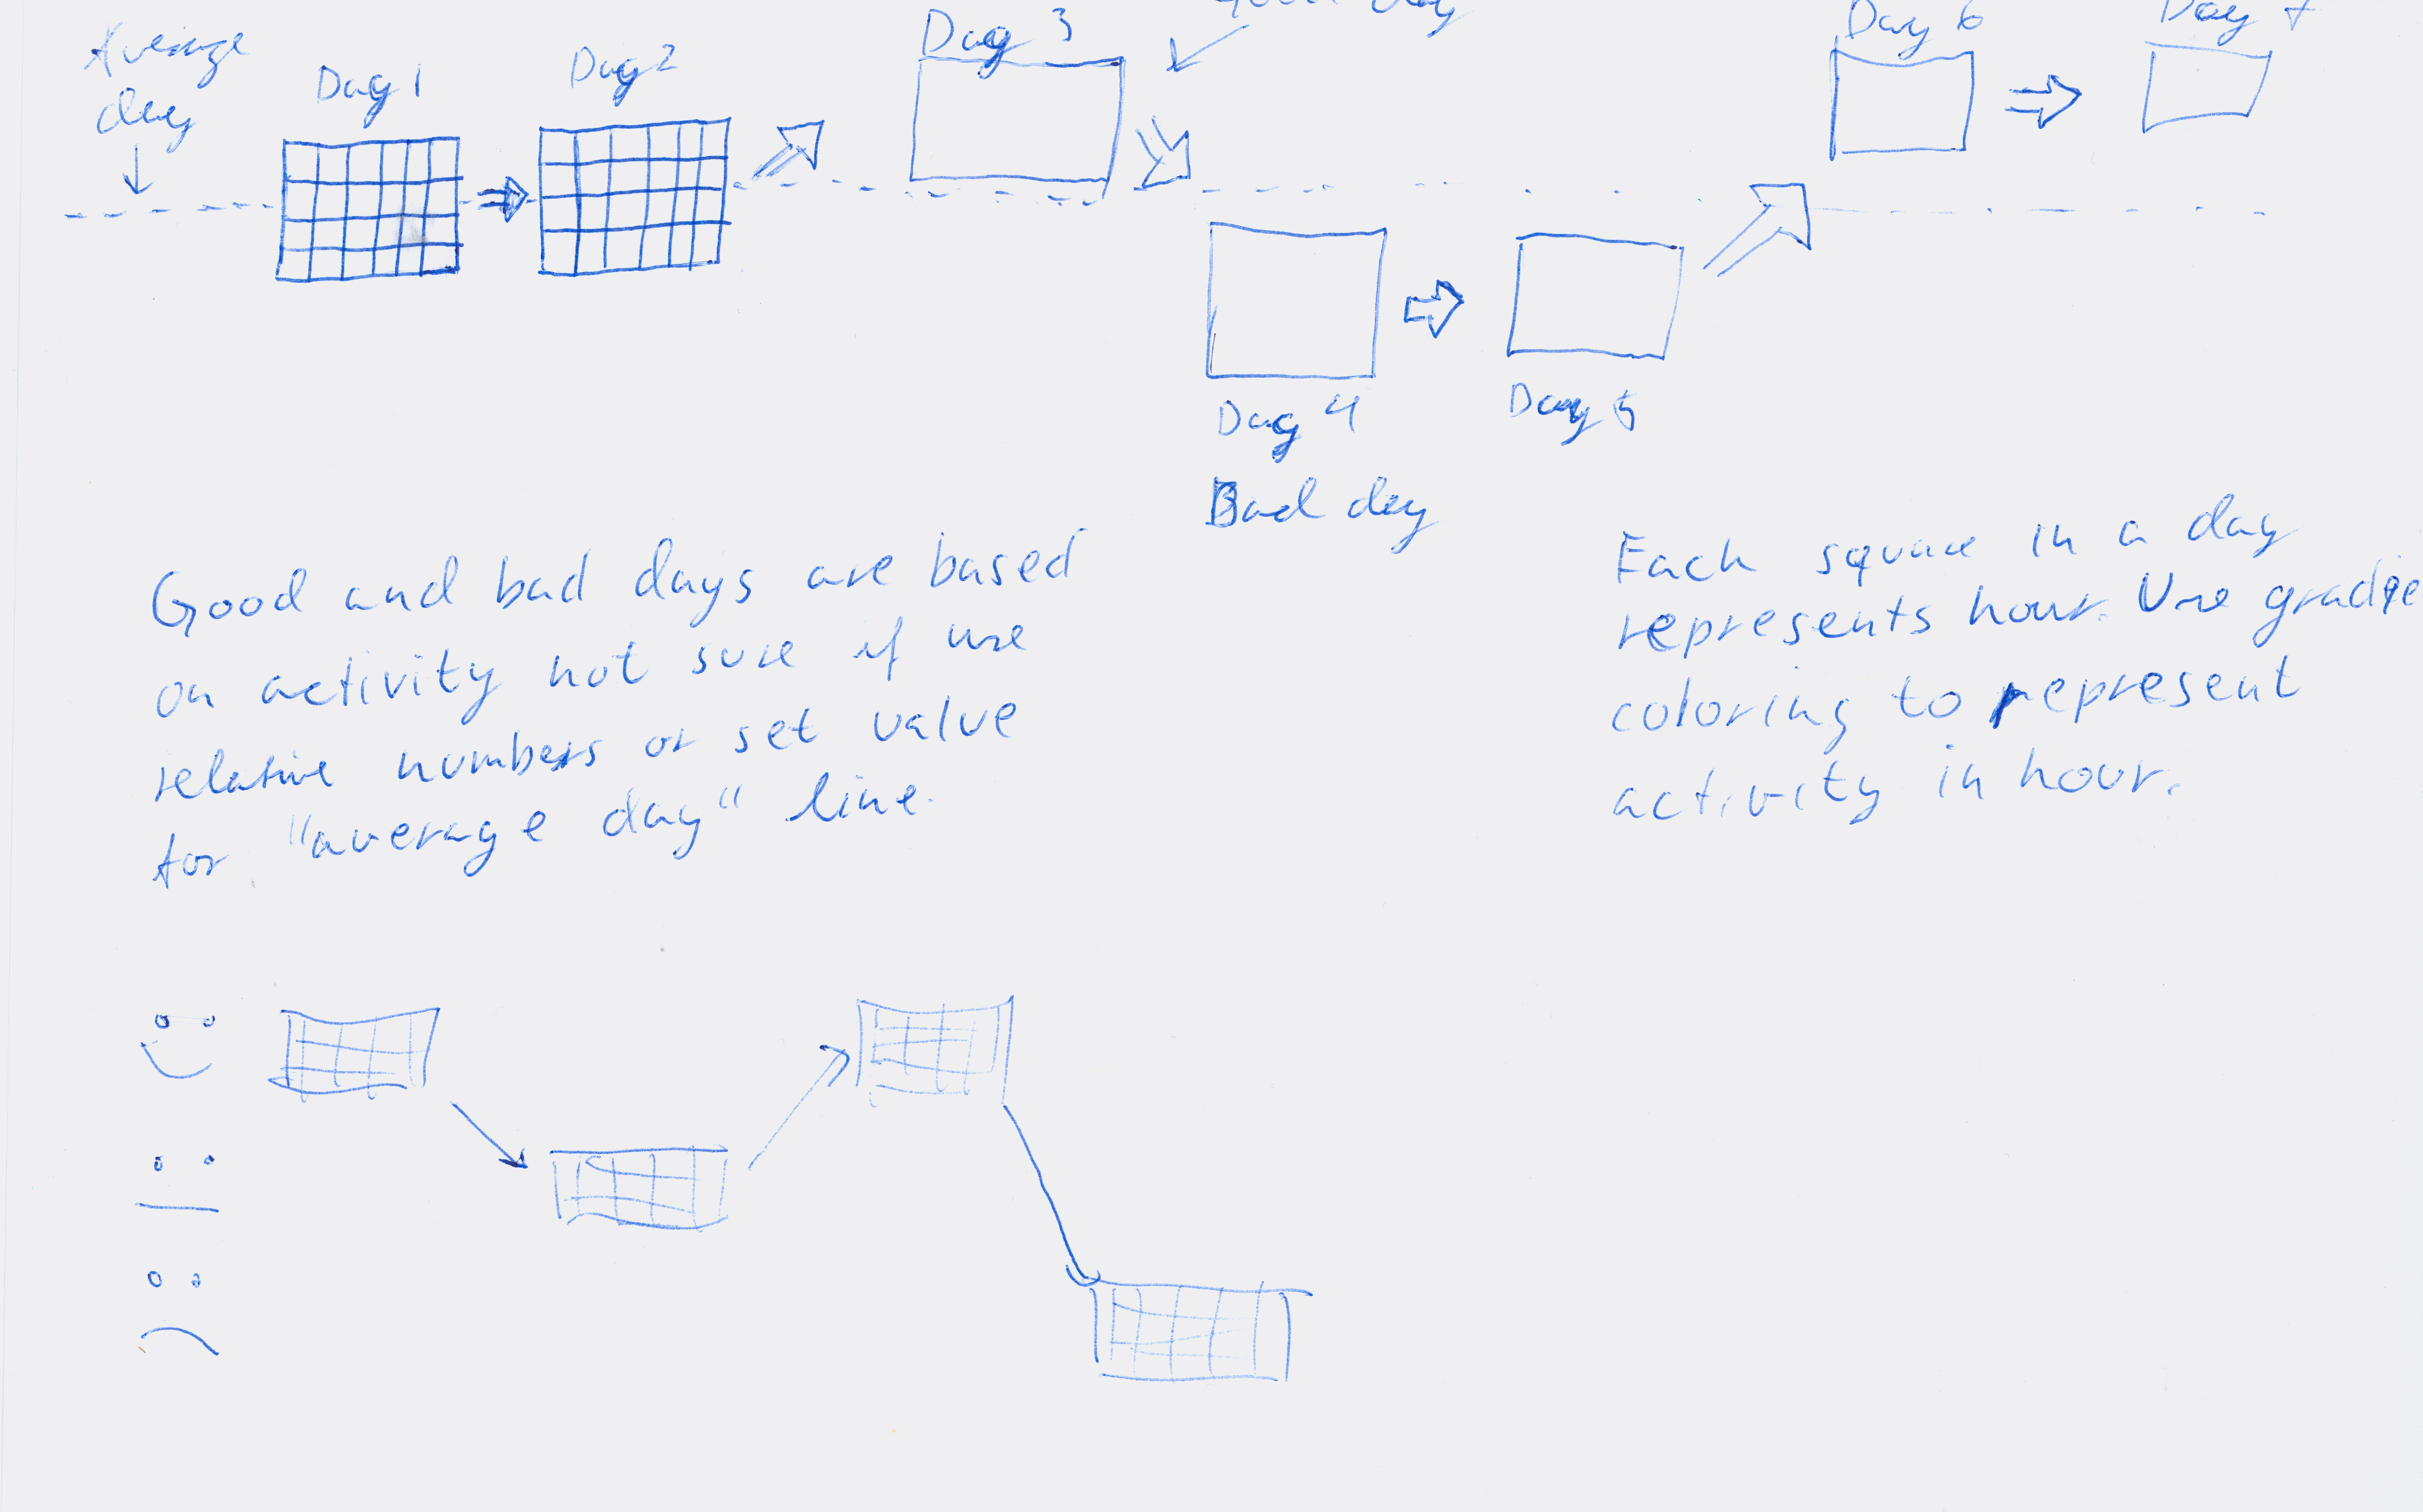 Average
day
Day 1
Day 2
Day 3
Day 6
Day 7
Day 4
Bad day
Day 5
Good and bad days are based
on activity not sure if use
relative numbers or set value
for "average day" line.
Each square in a day
represents hour. Use gradie
coloring to represent
activity in hour.